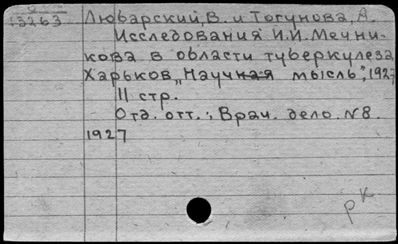 13263 Любарский, В. и Тогунова, А.
Исследования И.И. Мечни-
кова в области туберкулеза
Харьков, „Научная мысль”, 1927
11 стр.
Отд. отт.: Врач. дело. N8.
1927
рк